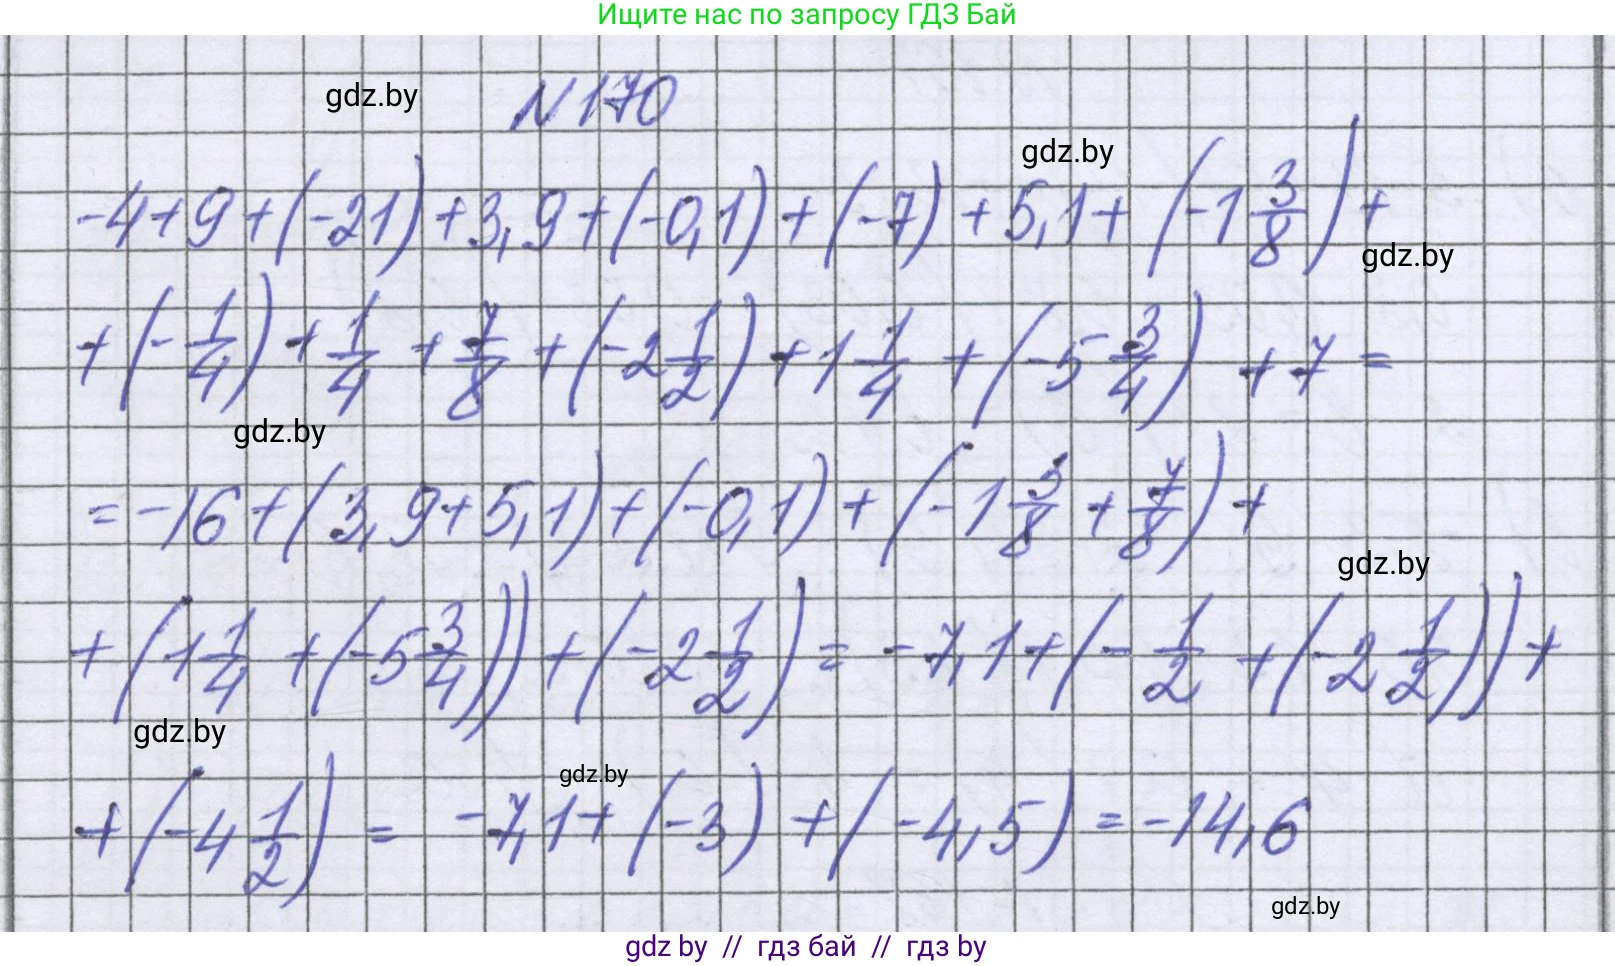 Ищите нас по запросу ГДЗ Бай
gdz.by
N 170
gdz.by
-4+9+(-21)+3,9+(-0,1)+(-7)+5,1+(-1 3/8)+
gdz.by
+(-1/4)+1/4+7/8+(-2 1/2)+1 1/4+(-5 3/4)+7=
gdz.by
=-16+(3,9+5,1)+(-0,1)+(-1 3/8+7/8)+
gdz.by
+(1 1/4+(-5 3/4))+(-2 1/2)=-7,1+(-1/2+(-2 1/2))+
gdz.by
gdz.by
+(-4 1/2)=-7,1+(-3)+(-4,5)=-14,6
gdz.by
gdz by // гдз бай // гдз by